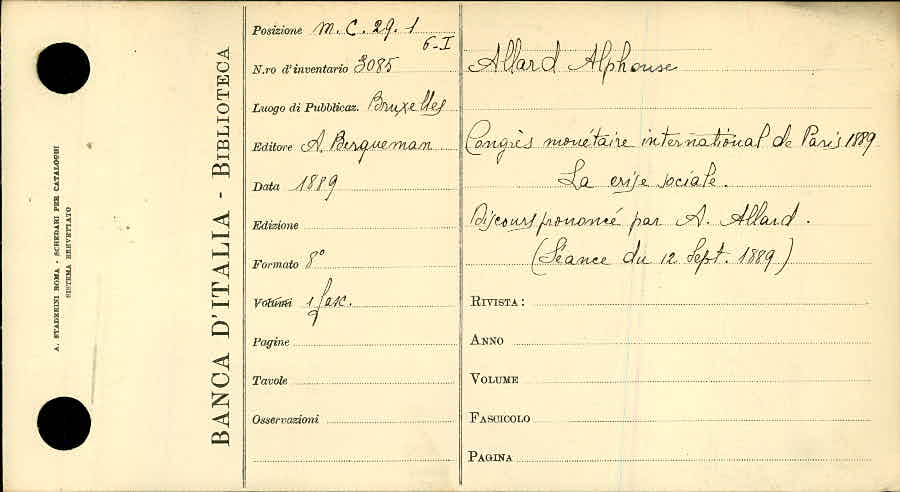 A. STADERINI ROMA - SCHEDARI PER CATALOGHI
SISTEMA BREVETTATO
BANCA D'ITALIA - BIBLIOTECA
Posizione M. C. 29. 1
6-I
N.ro d'inventario 3085
Luogo di Pubblicaz. Bruxelles
Editore A. Berqueman
Data 1889
Edizione
Formato 8°
Volumi 1 fasc.
Pagine
Tavole
Osservazioni
Allard Alphonse
Congrès monétaire international de Paris 1889
La crise sociale.
Discours prononcé par A. Allard.
(Séance du 12 Sept. 1889)
RIVISTA:
ANNO
VOLUME
FASCICOLO
PAGINA